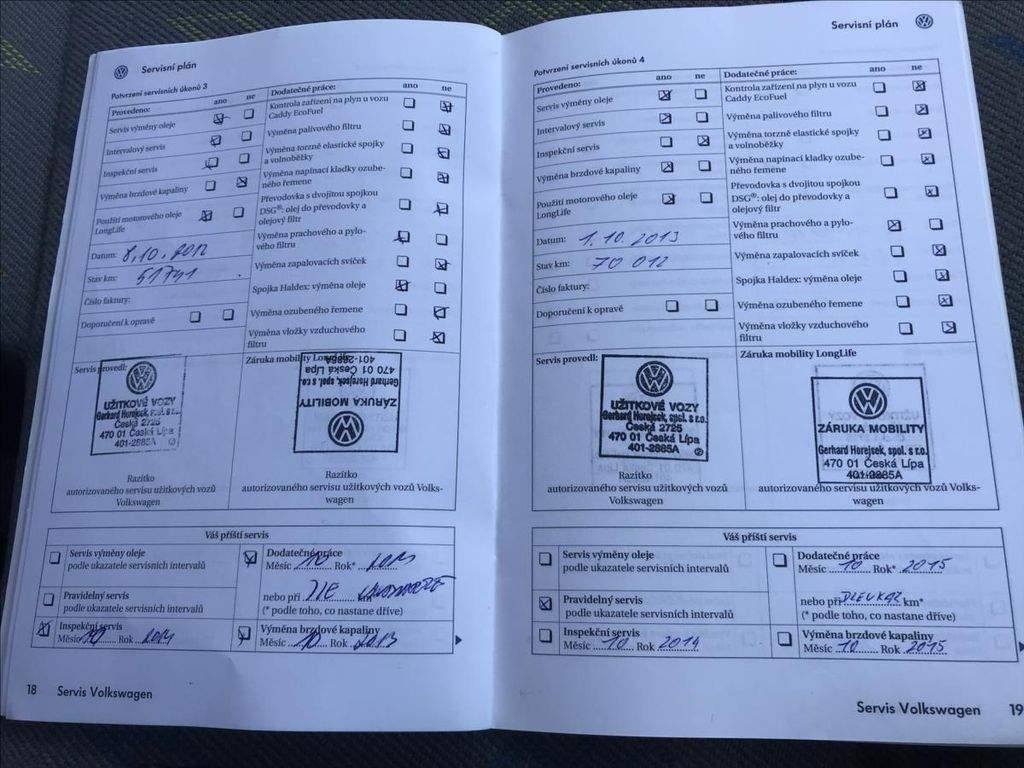 Servisní plán
Potvrzení servisních úkonů 3
Provedeno: ano ne
Servis výměny oleje
Intervalový servis
Inspekční servis
Výměna brzdové kapaliny
Použití motorového oleje
LongLife
Datum: 8.10.2012
Stav km: 51741
Číslo faktury:
Doporučení k opravě
Dodatečné práce: ano ne
Kontrola zařízení na plyn u vozu
Caddy EcoFuel
Výměna palivového filtru
Výměna torzně elastické spojky
a volnoběžky
Výměna napínací kladky ozube-
ného řemene
Převodovka s dvojitou spojkou
DSG®: olej do převodovky a
olejový filtr
Výměna prachového a pylo-
vého filtru
Výměna zapalovacích svíček
Spojka Haldex: výměna oleje
Výměna ozubeného řemene
Výměna vložky vzduchového
filtru
Servis provedl:
UŽITKOVÉ VOZY
Gerhard Horejsek, spol. s r.o.
Česká 2725
470 01 Česká Lípa
401-2885A
Razítko
autorizovaného servisu užitkových vozů
Volkswagen
Záruka mobility LongLife
ZÁRUKA MOBILITY
Gerhard Horejsek, spol. s r.o.
470 01 Česká Lípa
401-2885A
Razítko
autorizovaného servisu užitkových vozů Volks-
wagen
Váš příští servis
Servis výměny oleje
podle ukazatele servisních intervalů
Pravidelný servis
podle ukazatele servisních intervalů
Inspekční servis
Měsíc 10 Rok 2013
Dodatečné práce
Měsíc 10 Rok* 2013
nebo při NE km*
(* podle toho, co nastane dříve)
Výměna brzdové kapaliny
Měsíc 10 Rok 2013
18 Servis Volkswagen
Servisní plán
Potvrzení servisních úkonů 4
Provedeno: ano ne
Servis výměny oleje
Intervalový servis
Inspekční servis
Výměna brzdové kapaliny
Použití motorového oleje
LongLife
Datum: 1.10.2013
Stav km: 70 012
Číslo faktury:
Doporučení k opravě
Dodatečné práce: ano ne
Kontrola zařízení na plyn u vozu
Caddy EcoFuel
Výměna palivového filtru
Výměna torzně elastické spojky
a volnoběžky
Výměna napínací kladky ozube-
ného řemene
Převodovka s dvojitou spojkou
DSG®: olej do převodovky a
olejový filtr
Výměna prachového a pylo-
vého filtru
Výměna zapalovacích svíček
Spojka Haldex: výměna oleje
Výměna ozubeného řemene
Výměna vložky vzduchového
filtru
Servis provedl:
UŽITKOVÉ VOZY
Gerhard Horejsek, spol. s r.o.
Česká 2725
470 01 Česká Lípa
401-2885A
Razítko
autorizovaného servisu užitkových vozů
Volkswagen
Záruka mobility LongLife
ZÁRUKA MOBILITY
Gerhard Horejsek, spol. s r.o.
470 01 Česká Lípa
401-2885A
autorizovaného servisu užitkových vozů Volks-
wagen
Váš příští servis
Servis výměny oleje
podle ukazatele servisních intervalů
Pravidelný servis
podle ukazatele servisních intervalů
Inspekční servis
Měsíc 10 Rok 2014
Dodatečné práce
Měsíc 10 Rok* 2015
nebo při km*
(* podle toho, co nastane dříve)
Výměna brzdové kapaliny
Měsíc 10 Rok 2015
Servis Volkswagen 19